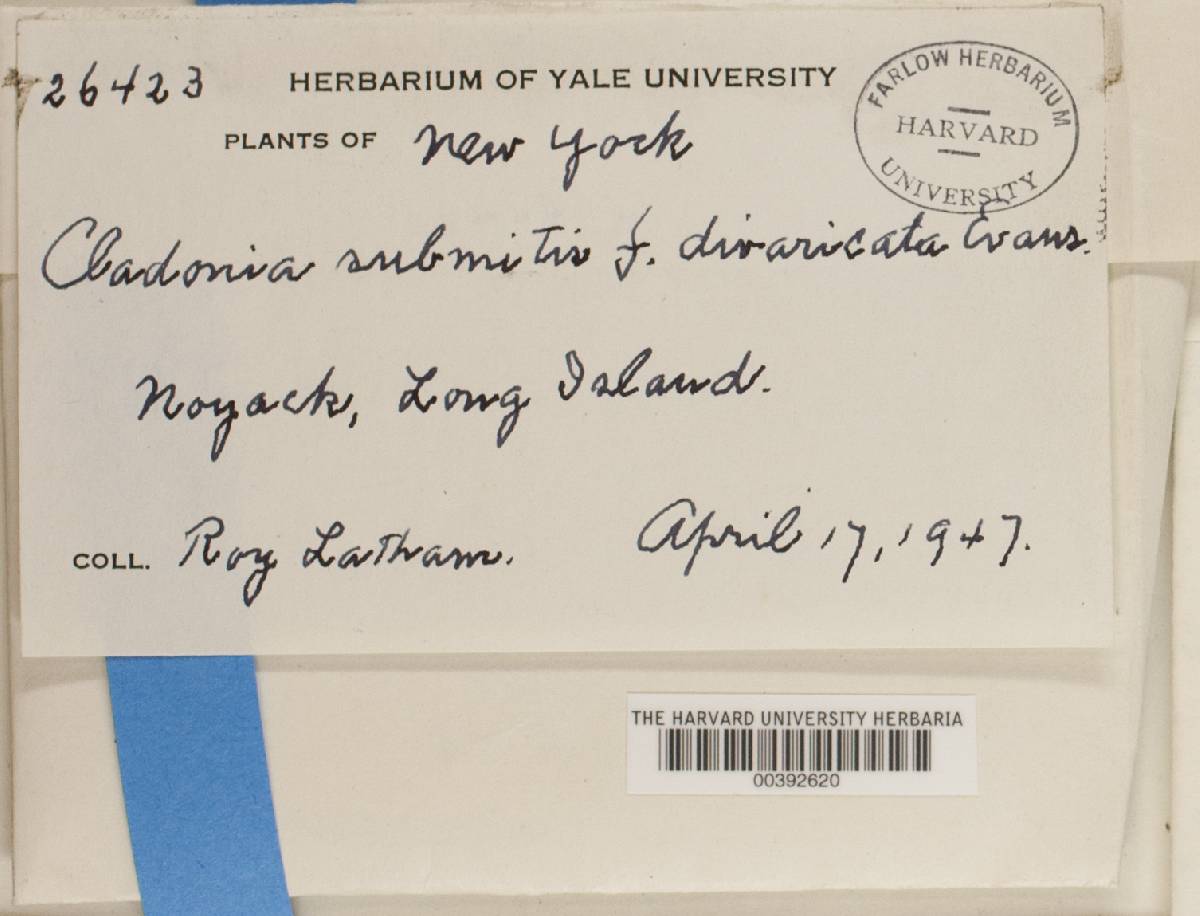 26423 HERBARIUM OF YALE UNIVERSITY
PLANTS OF New York
FARLOW HERBARIUM
HARVARD
UNIVERSITY
Cladonia submitis f. divaricata Evans.
Noyack, Long Island.
COLL. Roy Latham. April 17, 1947.
THE HARVARD UNIVERSITY HERBARIA
00392620